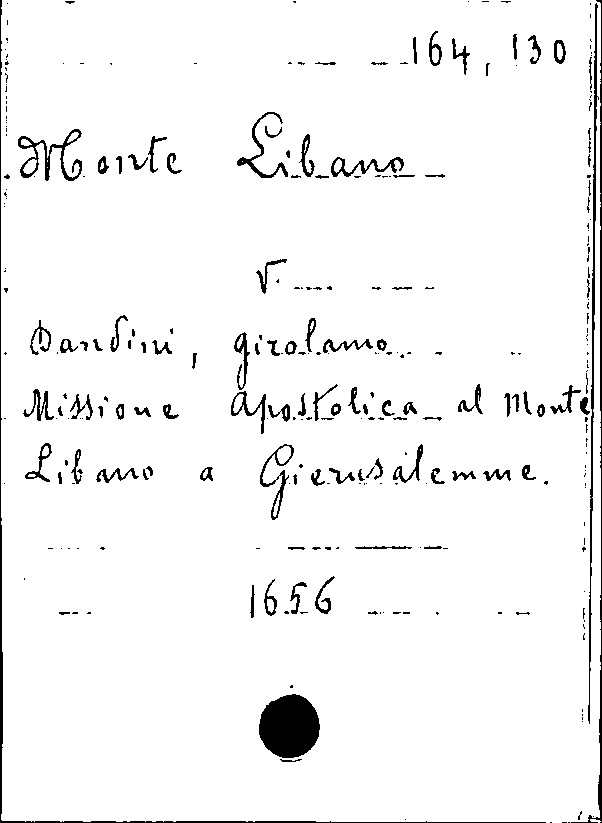 164, 130
Monte Libano
V.
Dandini, Girolamo.
Missione Apostolica al Monte
Libano a Gierusalemme.
1656